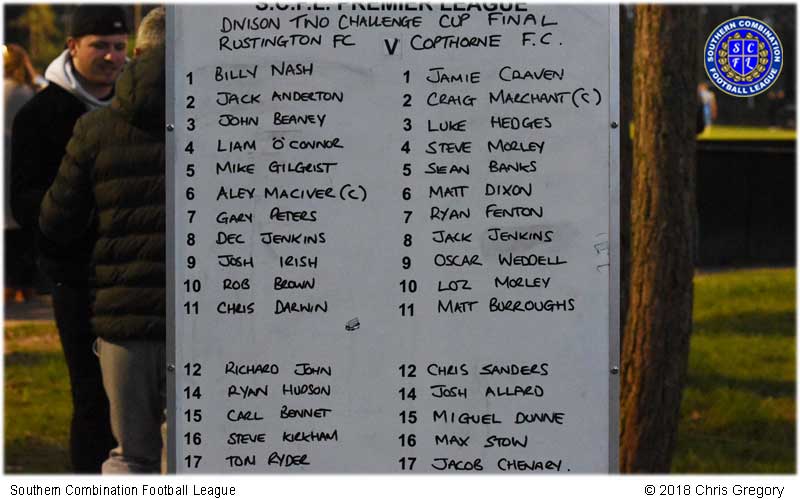 S.C.F.L. PREMIER LEAGUE
DIVISON TWO CHALLENGE CUP FINAL
RUSTINGTON FC V COPTHORNE F.C.
1 BILLY NASH 1 JAMIE CRAVEN
2 JACK ANDERTON 2 CRAIG MARCHANT (C)
3 JOHN BEANEY 3 LUKE HEDGES
4 LIAM O'CONNOR 4 STEVE MORLEY
5 MIKE GILGRIST 5 SEAN BANKS
6 ALEX MACIVER (C) 6 MATT DIXON
7 GARY PETERS 7 RYAN FENTON
8 DEC JENKINS 8 JACK JENKINS
9 JOSH IRISH 9 OSCAR WEDDELL
10 ROB BROWN 10 LOZ MORLEY
11 CHRIS DARWIN 11 MATT BURROUGHS
12 RICHARD JOHN 12 CHRIS SANDERS
14 RYAN HUDSON 14 JOSH ALLARD
15 CARL BENNET 15 MIGUEL DUNNE
16 STEVE KIRKHAM 16 MAX STOW
17 TOM RYDER 17 JACOB CHENARY.
SOUTHERN COMBINATION
S C
F L
FOOTBALL LEAGUE
Southern Combination Football League © 2018 Chris Gregory